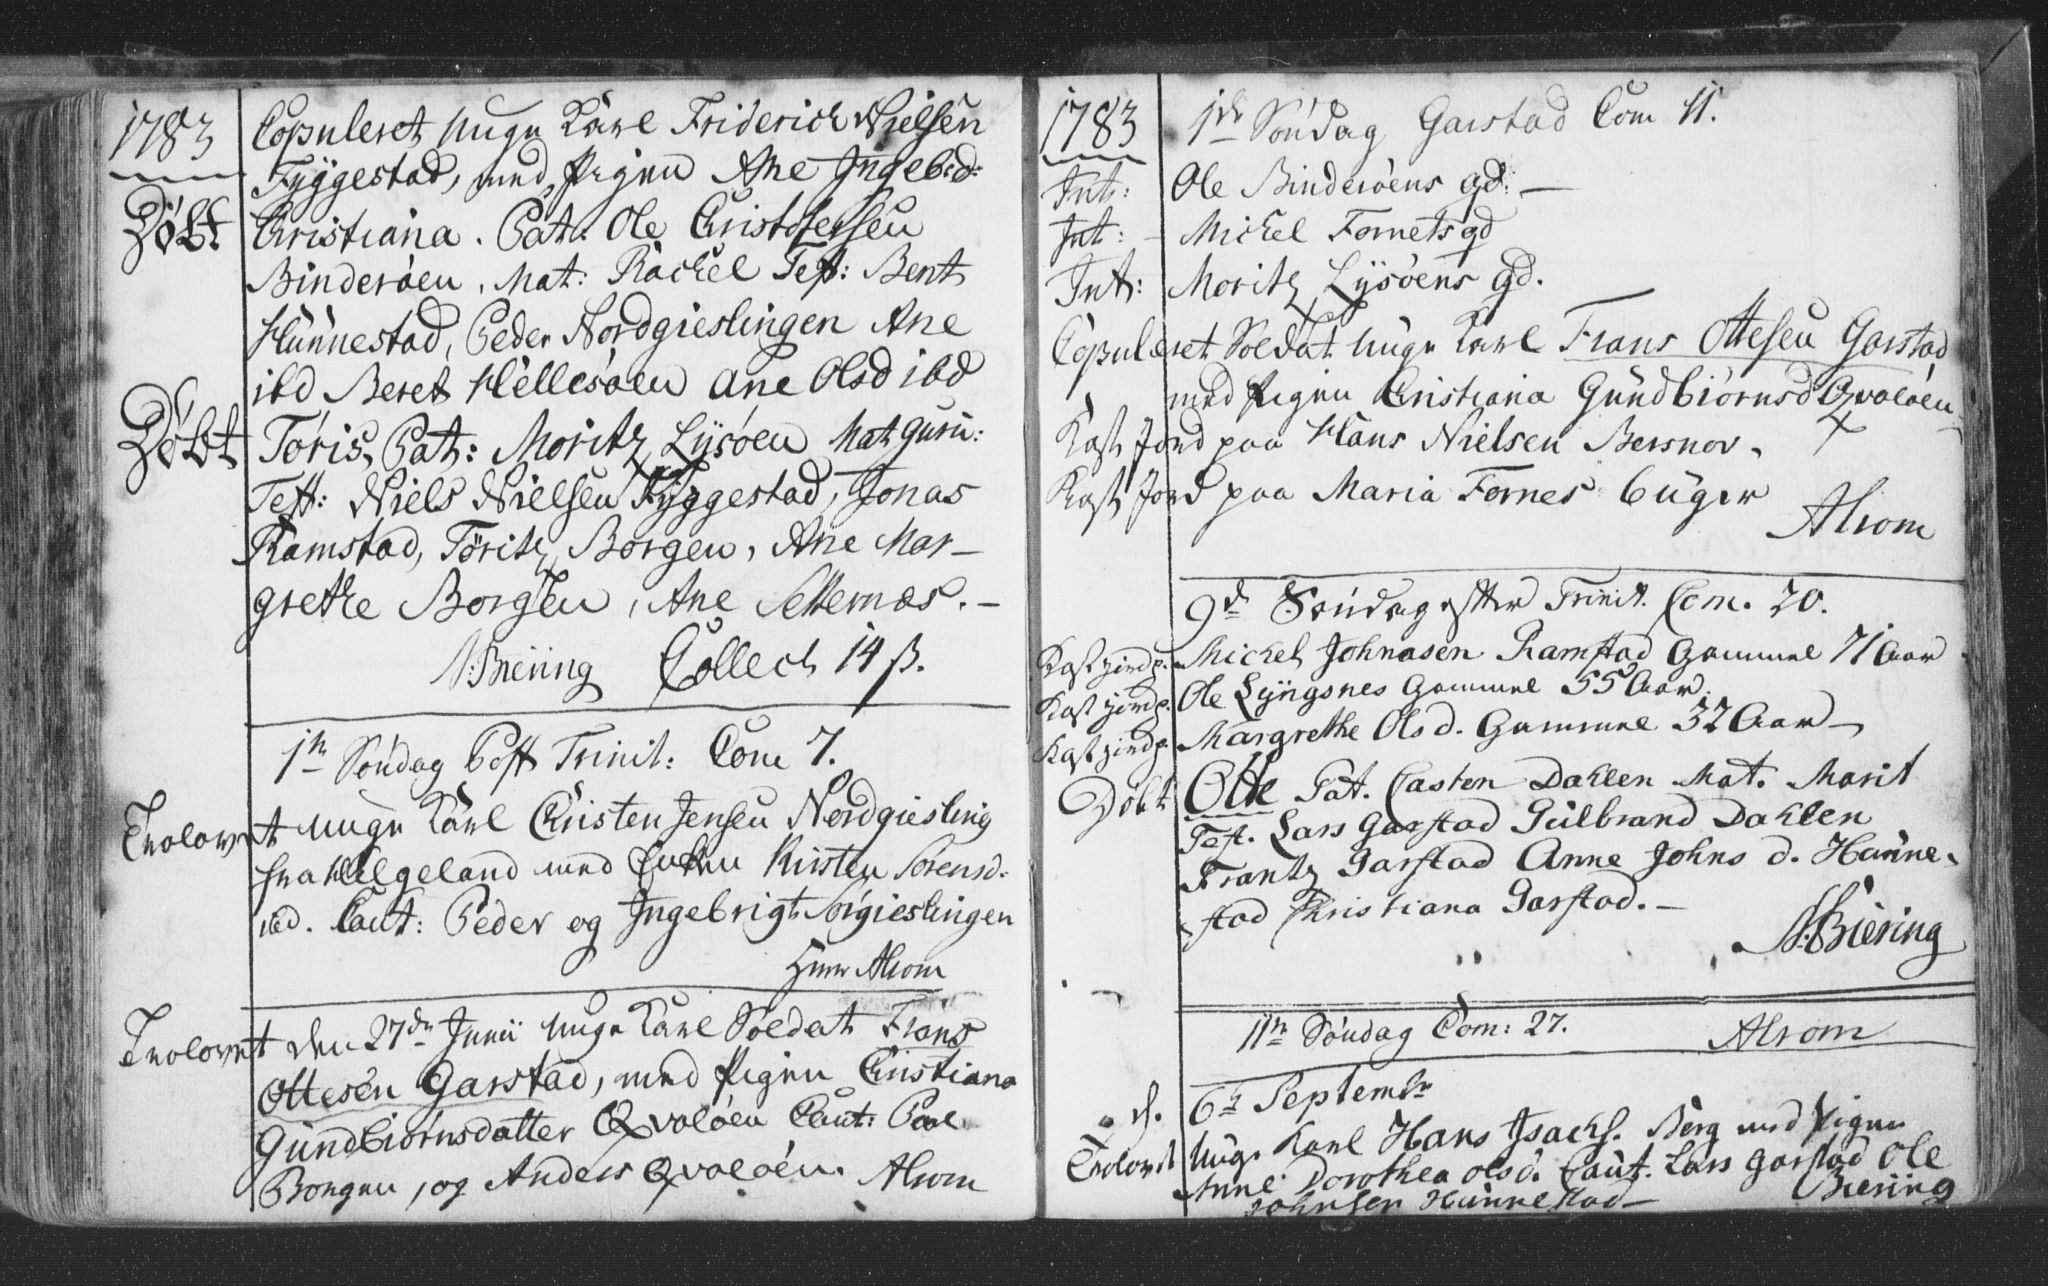 1783
Copuleret unge Karl Friderich Nielsen
Fyggestad, med Pigen Ane Ingeb:d:
Døbt Christiana. Pat: Ole Christophersen
Binderøen, Mat: Rachel Test: Bent
Hunnestad, Peder Nordgieslingen Ane
ibd Beret Hellesøen Ane Olsd ibd
Døbt Toris, Pat: Moritz Lysøen Mat guru:
Test: Niels Nielsen Fyggestad, Jonas
Ramstad, Töritz Borgen, Ane Mar-
grethe Borgen, Ane Setternæs.-
N:Biering Collech 14 β.
1ste Søndag Post Trinit: Com 7.
Trolovet unge Karl Christen Jensen Nordgiesling
fra Helgeland med Enken Kirsten Sorensd.
ibd. Caut: Peder og Ingebrigt Sørgieslingen
Hverr Alrom
Trolovet den 27de Junii unge Karl Soldat Frans
Ottesen Garstad, med Pigen Christiana
Gundbiørnsdatter Qvaløen Caut: Paul
Borgen, og Anders Qvaløen. Alrom
1783 1de Søndag Garstad Com 11.
Int: Ole Binderøens gd: -
Int: - Michel Fornets gd
Int: Moritz Lysøens gd.
Copuleret Soldat unge Karl Frans Ottesen Garstad
med Pigen Christiana Gundbiørnsd Qvaløen
Kast Jord paa Hans Nielsen Bersnov.
Kast Jord paa Maria Fornes 6 uger
Alrom
9d Søndag efter Trinit. Com. 20.
Kast jord p. Michel Johnasen Ramstad Gammel 71 Aar
Kast jord p. Ole Lyngsnes Gammel 55 Aar.
Kast jord p. Margrethe Olsd. Gammel 32 Aar -
Døbt Otte Pat. Casten Dahlen Mat. Marit
Test. Lars Garstad Gulbrand Dahlen
Frantz Garstad Anne Johns d. Hunne-
stad Christiana Garstad. -
N:Biering
11te Søndag Com: 27. Alrom
d. 6te Septembr
Trolovet unge Karl Hans Isachs. Berg med Pigen
Anne Dorothea Olsd. Caut. Lars Garstad Ole
Johnsen Hunnestad - Biering